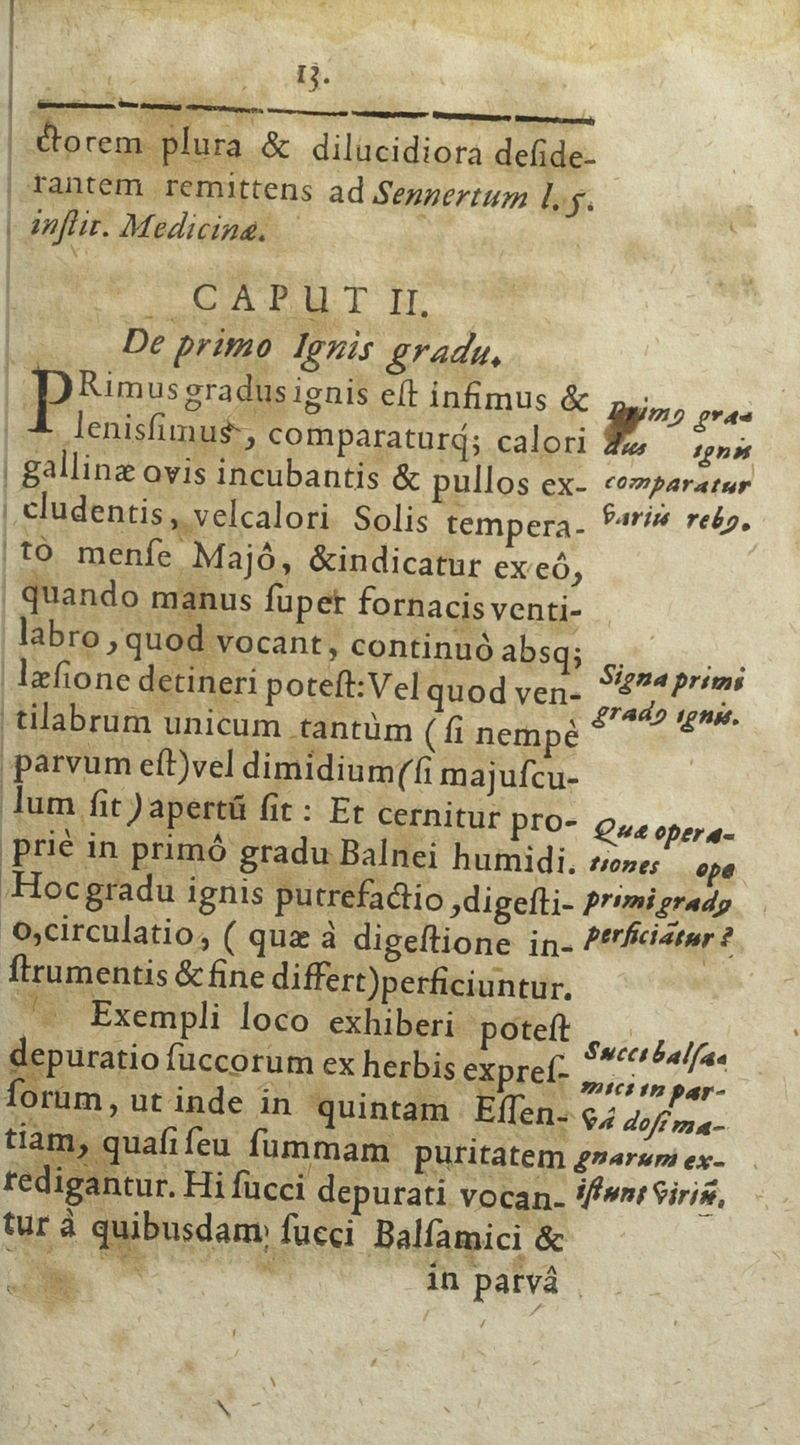 13.
ctorem plura & dilucidiora deſide-
rantem remittens ad Sennertum l. 5.
inſtit. Medicinæ.
CAPUT II.
De primo Ignis gradu.
PRimus gradus ignis eſt infimus &
leniſſimus, comparaturq; calori
gallinæ ovis incubantis & pullos ex-
cludentis, vel calori Solis tempera-
tò menſe Majô, & indicatur ex eô,
quando manus ſuper fornacis venti-
labro, quod vocant, continuò absq;
læſione detineri poteſt: Vel quod ven-
tilabrum unicum tantùm (ſi nempè
parvum eſt) vel dimidium (ſi majuſcu-
lum ſit) apertũ ſit: Et cernitur pro-
priè in primô gradu Balnei humidi.
Hoc gradu ignis putrefactio, digeſti-
o, circulatio, (quæ à digeſtione in-
ſtrumentis & fine differt) perficiuntur.
Exempli loco exhiberi poteſt
depuratio ſuccorum ex herbis expreſ-
ſorum, ut inde in quintam Eſſen-
tiam, quaſi ſeu ſummam puritatem
redigantur. Hi ſucci depurati vocan-
tur à quibusdam ſucci Balſamici &
in parvâ
Primꝰ gra-
dus ignis
comparatur
variis rebꝰ.
Signa primi
gradꝰ ignis.
Quæ opera-
tiones ope
primi gradꝰ
perficiãtur?
Succi balſa-
mici in par-
vâ doſi ma-
gnarum ex-
iſtunt viriũ.